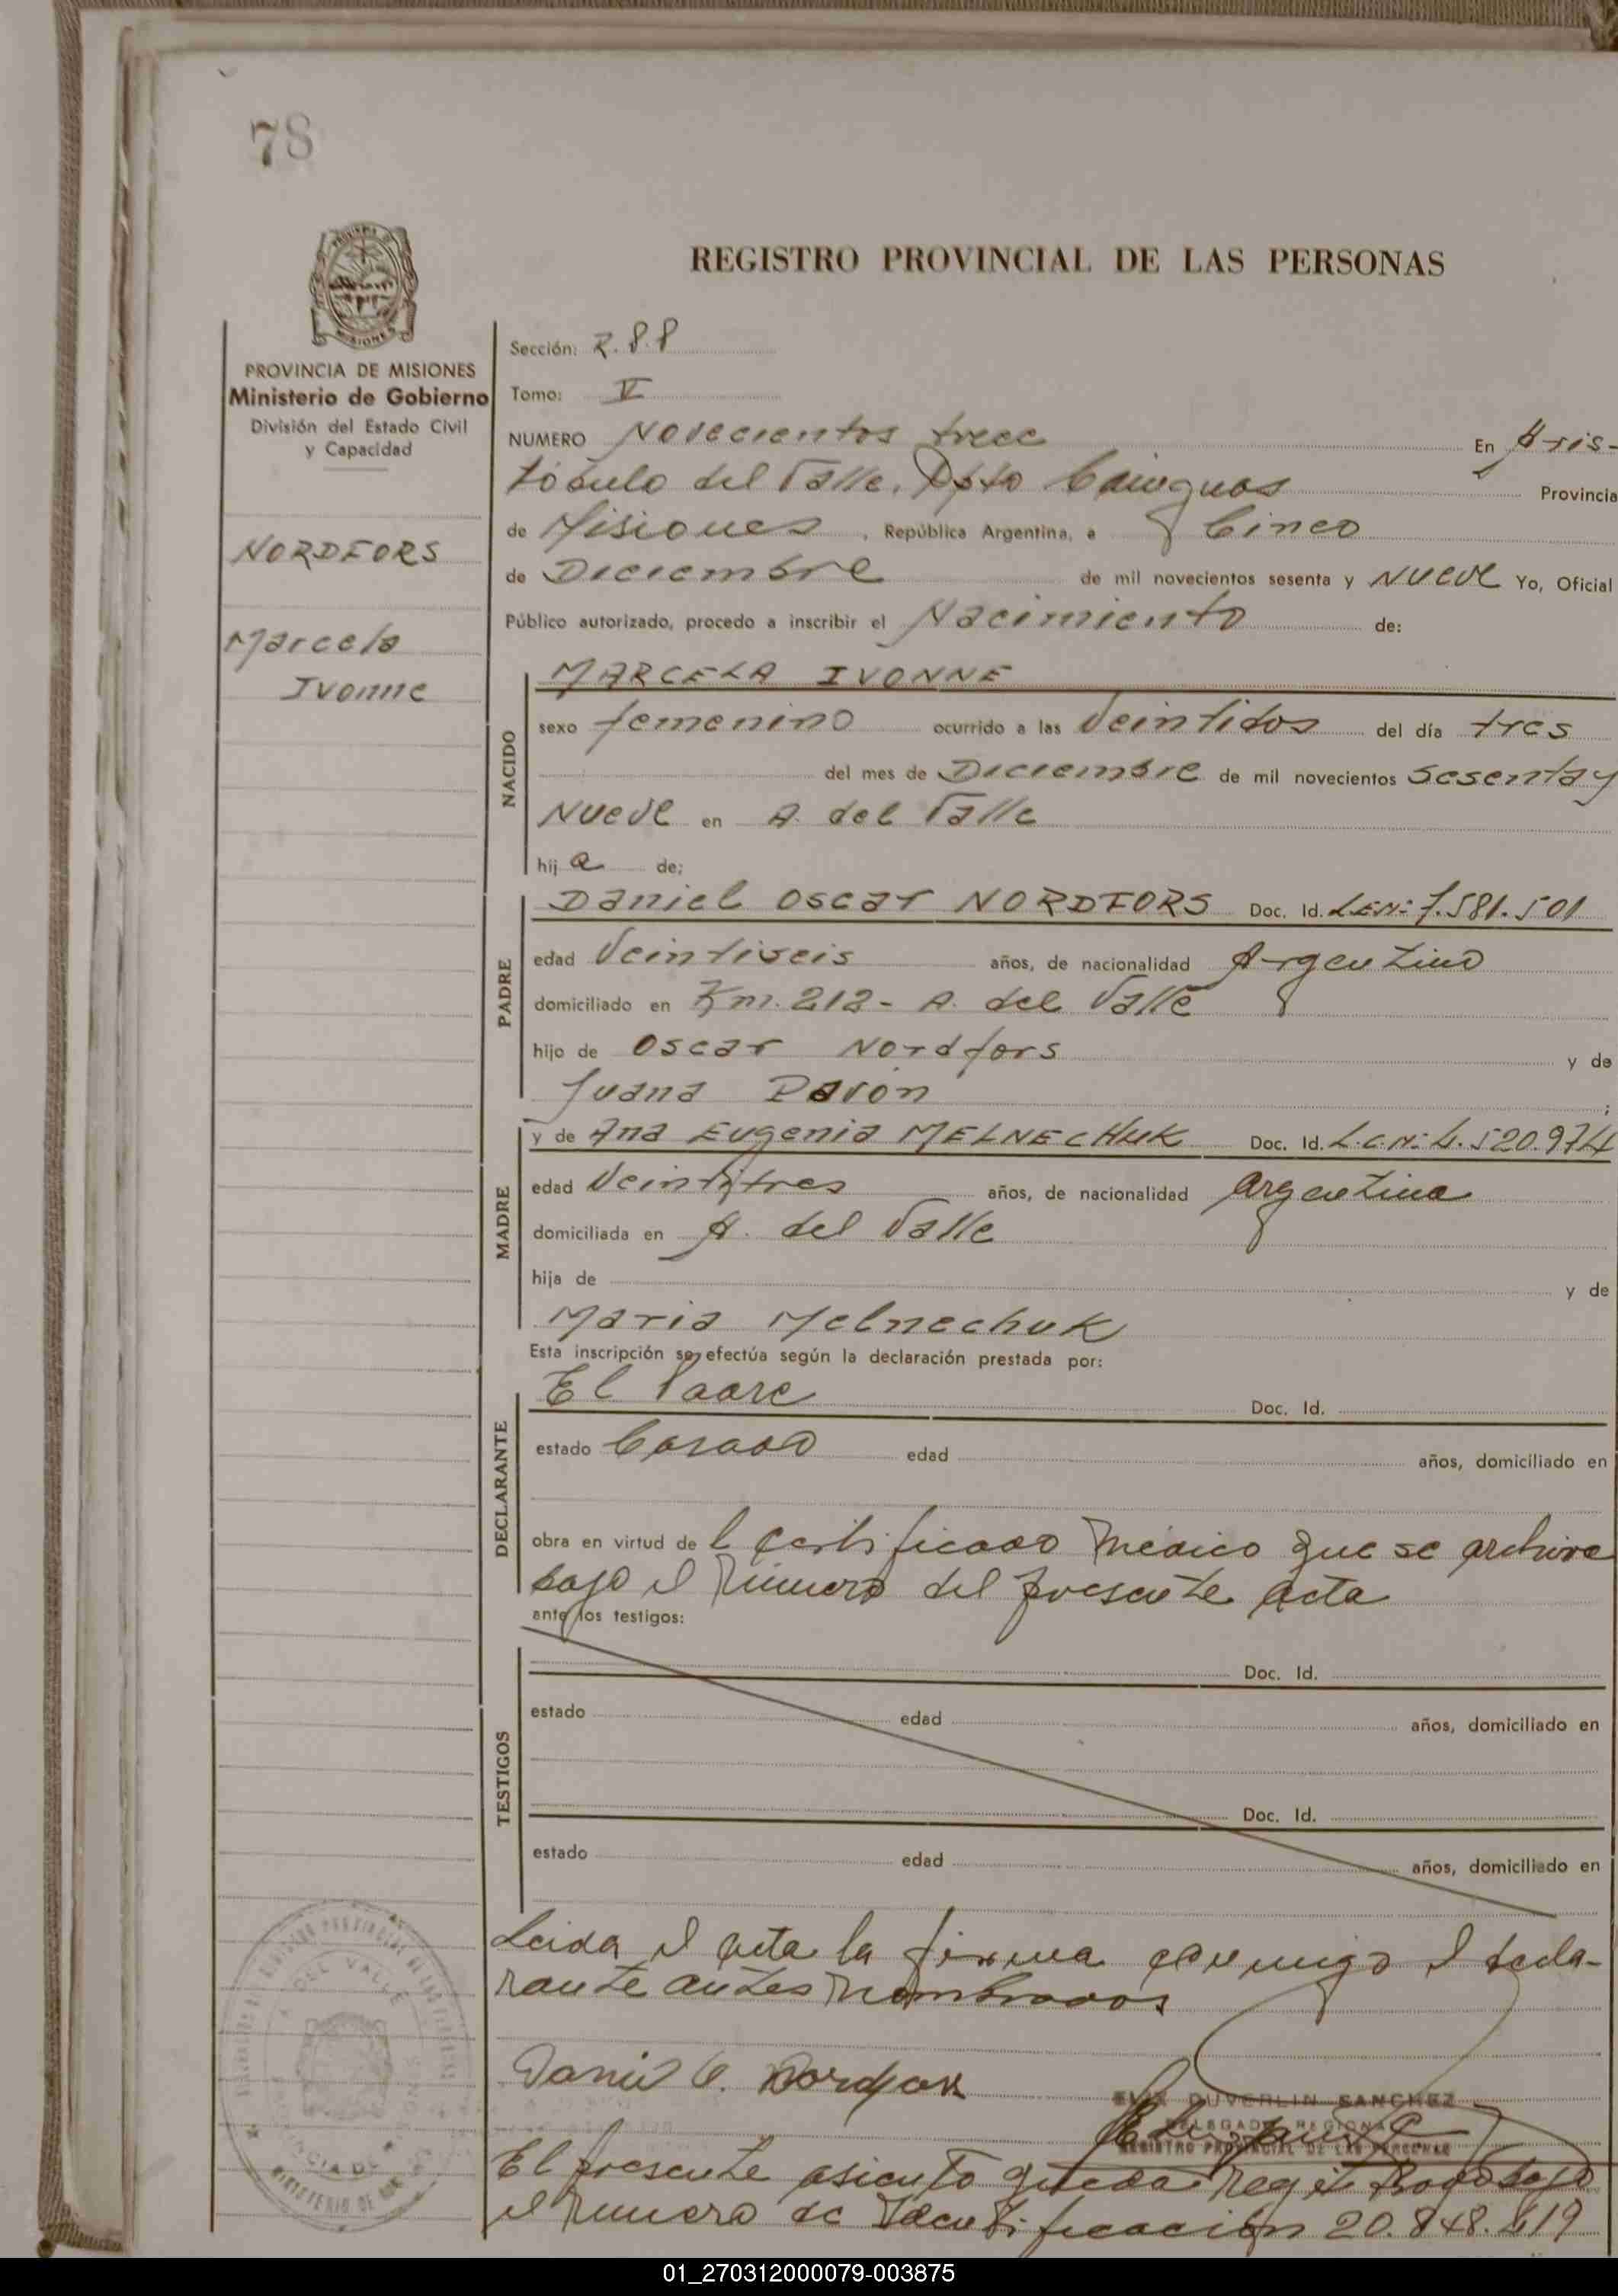 78
REGISTRO PROVINCIAL DE LAS PERSONAS
MISIONES
PROVINCIA DE MISIONES
Ministerio de Gobierno
División del Estado Civil
y Capacidad
NORDFORS
Marcela
Ivonne
Sección: 2.8.8
Tomo: V
NUMERO Novecientos trece En Aris-
tóbulo del Valle, Dpto Cainguas Provincia
de Misiones, República Argentina, a Cinco
de Diciembre de mil novecientos sesenta y NUEVE Yo, Oficial
Público autorizado, procedo a inscribir el Nacimiento de:
NACIDO
MARCELA IVONNE
sexo femenino ocurrido a las Veintidos del día tres
del mes de Diciembre de mil novecientos Sesenta y
NUEVE en A. del Valle
hij a de:
PADRE
Daniel Oscar NORDFORS Doc. Id. L.E.Nº 7.581.501
edad Veintiseis años, de nacionalidad Argentino
domiciliado en Km. 212- A. del Valle
hijo de Oscar Nordfors y de
Juana Pavón ;
MADRE
y de Ana Eugenia MELNECHUK Doc. Id. L.C.Nº 4.520.974
edad Veintitres años, de nacionalidad Argentina
domiciliada en A. del Valle
hija de y de
Maria Melnechuk
Esta inscripción se efectúa según la declaración prestada por:
DECLARANTE
El Padre Doc. Id.
estado Casado edad años, domiciliado en
obra en virtud de l certificado médico que se archiva
bajo el número del presente acta
ante los testigos:
TESTIGOS
Doc. Id.
estado edad años, domiciliado en
Doc. Id.
estado edad años, domiciliado en
Leida el acta la firma conmigo el decla-
rante antes nombrados
Daniel O. Nordfors
DUVERLIN SANCHEZ
DELEGADO REGIONAL
REGISTRO PROVINCIAL DE LAS PERSONAS
El presente asiento queda registrado bajo
el número de Identificación 20.848.419
DEL VALLE
MINISTERIO DE
01_270312000079-003875